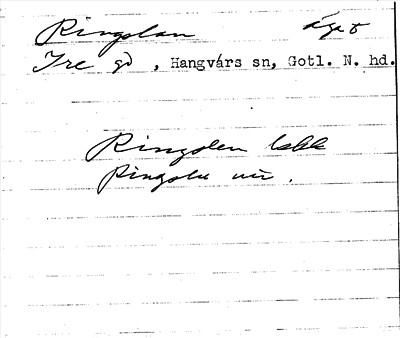 Ringslan äga
Ire gd , Hangvárs sn, Gotl. N. hd.
Ringslen
Ringsle